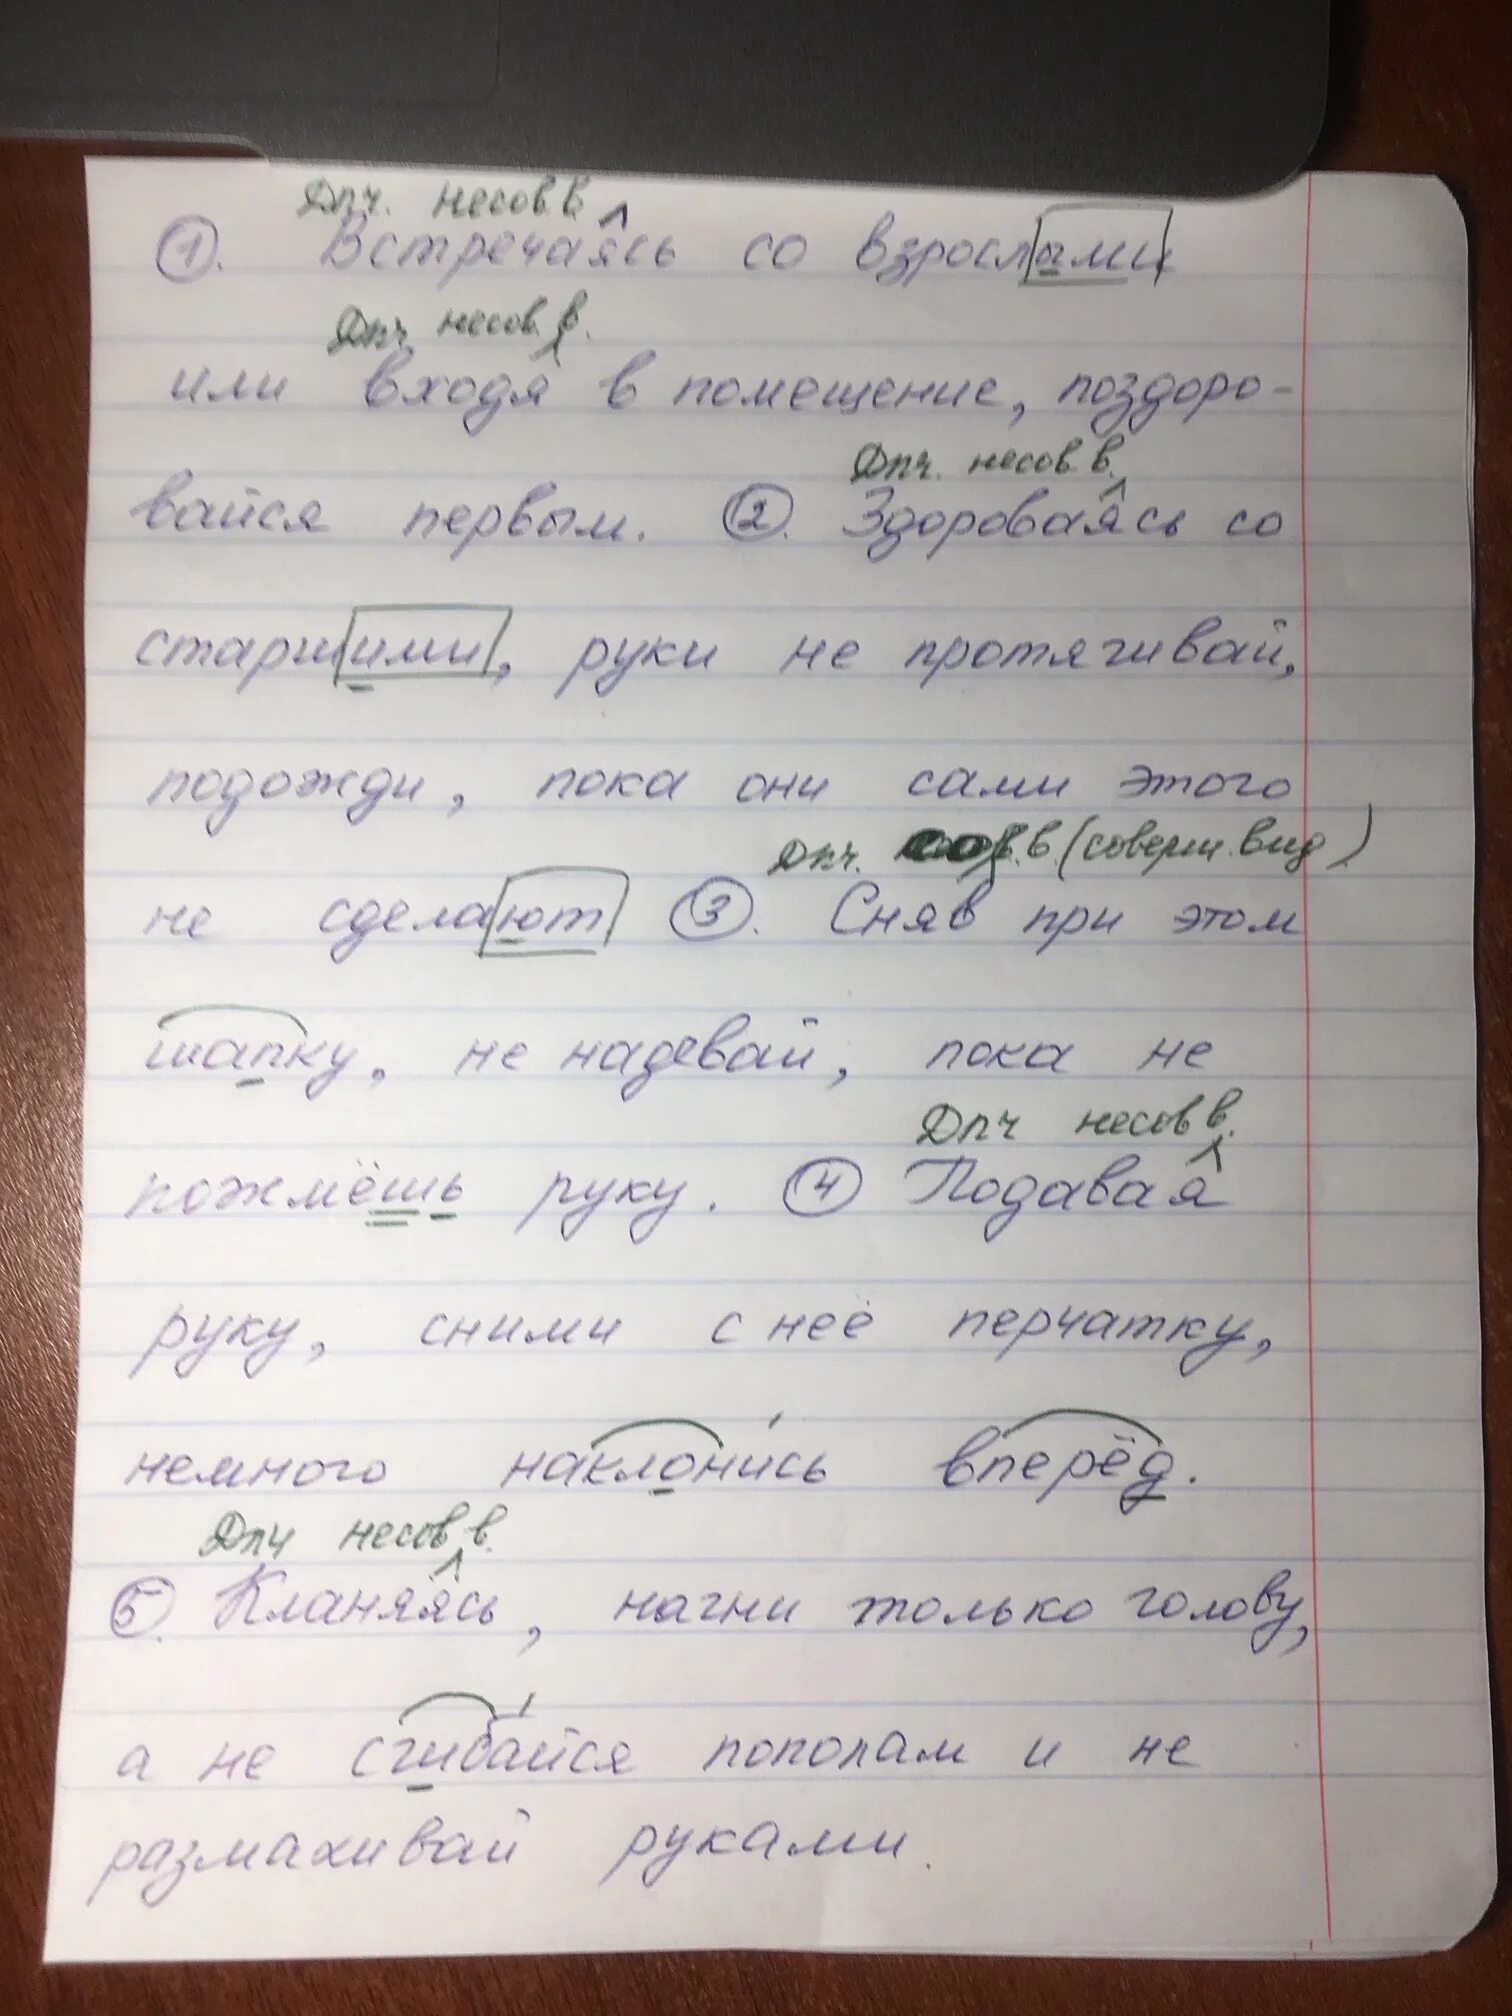 Дпч. несов.в.
①. Встречаясь со взрослыми
Дпч несов.в.
или входя в помещение, поздоро-
Дпч. несов.в.
вайся первым. ②. Здороваясь со
старшими, руки не протягивай,
подожди, пока они сами этого
Дпч. сов.в. (соверш. вид)
не сделают ③. Сняв при этом
шапку, не надевай, пока не
Дпч несов в.
пожмёшь руку. ④ Подавая
руку, сними с неё перчатку,
немного наклонись вперёд.
Дпч несов в.
⑤. Кланяясь, нагни только голову,
а не сгибайся пополам и не
размахивай руками.